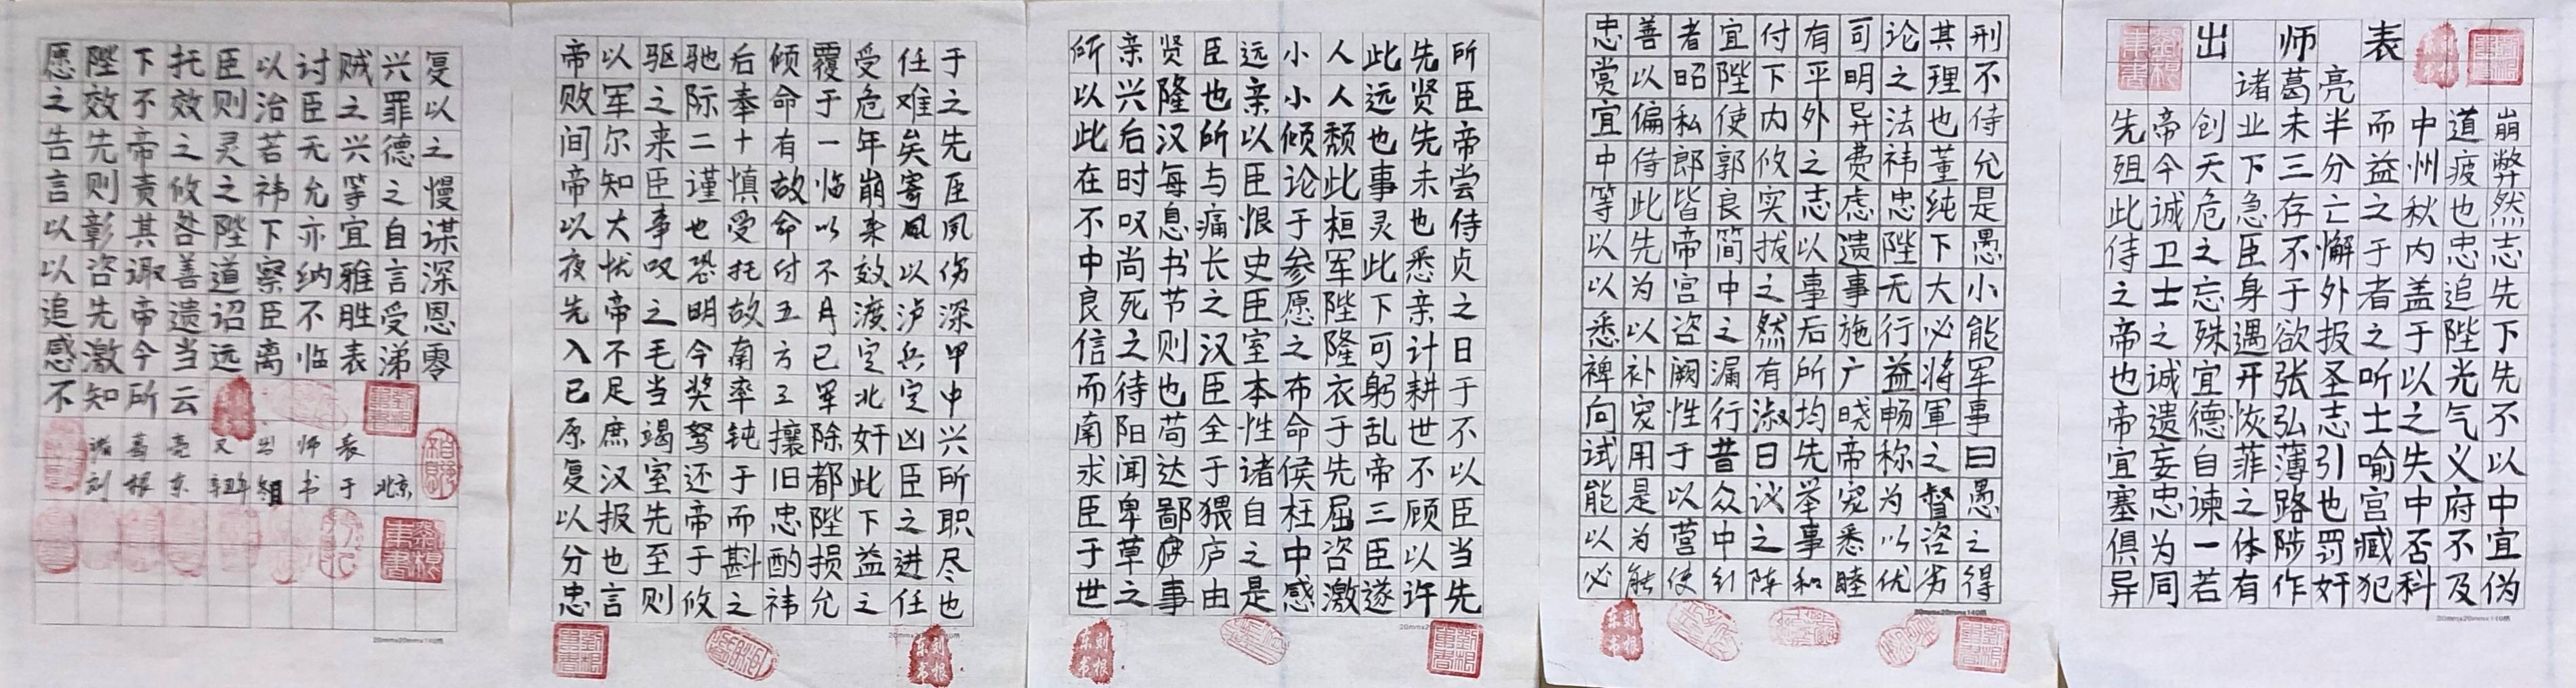 出师表
诸葛亮
先帝创业未半而中道崩
殂今天下三分益州疲弊
此诚危急存亡之秋也然
侍卫之臣不懈于内忠志
之士忘身于外者盖追先
帝之殊遇欲报之于陛下
也诚宜开张圣听以光先
帝遗德恢弘志士之气不
宜妄自菲薄引喻失义以
塞忠谏之路也宫中府中
俱为一体陟罚臧否不宜
异同若有作奸犯科及伪
忠善者宜付有可论其刑
赏以昭陛下平明之理不
宜偏私使内外异法也侍
中侍郎郭攸之费祎董允
等此皆良实志虑忠纯是
以先帝简拔以遗陛下愚
以为宫中之事事无大小
悉以咨之然后施行必能
裨补阙漏有所广益将军
向宠性行淑均晓畅軍事
试用于昔日先帝称之曰
能是以众议举宠为督愚
以为营中之事悉以咨之
必能使行阵和睦优劣得
所亲贤臣远小人此先所
以兴隆也亲小人远贤臣
此后汉所以倾颓也先帝
在时每与臣论此事未尝
不叹息痛恨于桓灵也侍
中尚书长史参军此悉贞
良死节之臣愿陛下亲之
信之则汉室之隆可计日
而待也臣本布衣躬耕于
南阳苟全性命于乱世不
求闻达于诸侯先帝不以
臣卑鄙猥自枉屈三顾臣
于草庐之中咨臣以当
世之事由是感激遂许先
帝以驱驰后倾覆受任于
败军之际奉命于危难之
间尔来二十有一年矣先
帝知臣谨慎故临崩寄臣
以大事也受命以来夙
夜忧叹恐托付不效以伤
先帝之明故五月渡泸深
入不毛今南方已定兵甲
已足当奖率三军北定中
原庶竭驽钝攘除奸凶兴
复汉室还于旧都此臣所
以报先帝而忠陛下之职
分也至于斟酌损益进尽
忠言则攸之祎允之任也
愿陛下托臣以讨贼兴复
之效不效则治臣之罪以
告先帝之灵若无兴德之
言则责攸之祎允等之慢
以彰其咎陛下亦宜自谋
以咨诹善道察纳雅言深
追先帝遗诏臣不胜受恩
感激今当远离临表涕零
不知所云
诸葛亮又出师表
刘根东辛丑年书于北京